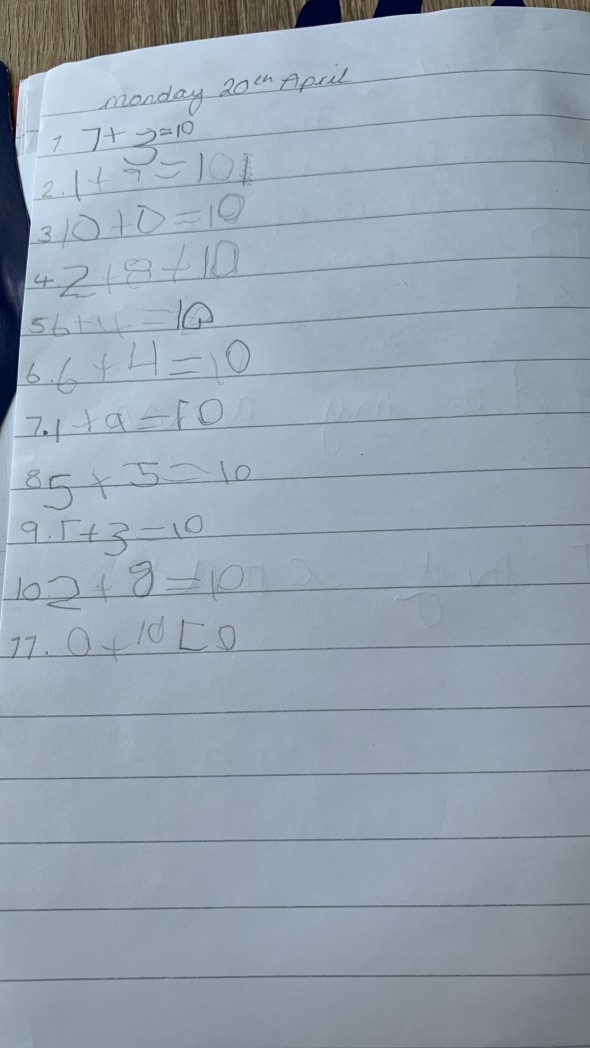 Monday 20th April
1. 7+3=10
2. 1+9=10
3 10+0=10
4. 2+8+10
5 6+4=10
6. 6+4=10
7. 1+9=10
8 5+5=10
9. 7+3=10
10 2+8=10
11. 0+10 10